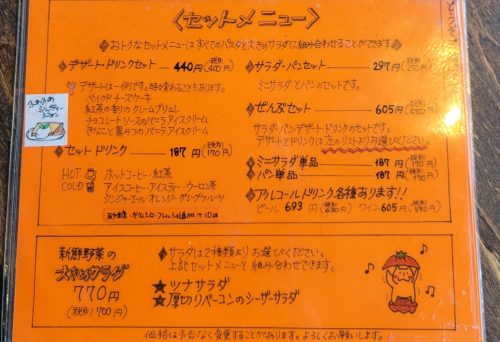 〈セットメニュー〉
おトクなセットメニューはすべてのパスタと大きめサラダに組み合わせることができます。
デザート・ドリンクセット 440円(税別400円)
デザートは一例です。時々変わることもあります。
ベイクドチーズケーキ
紅茶の香りのクリームブリュレ
チョコレートソースのバニラアイスクリーム
きなこと黒みつのバニラアイスクリーム
セットドリンク 187円(税別170円)
HOT ホットコーヒー・紅茶
COLD アイスコーヒー・アイスティー・ウーロン茶
ジンジャーエール・オレンジ・グレープフルーツ
サラダ・パンセット 297円(税別270円)
ミニサラダとパンのセットです。
ぜんぶセット 605円(税別550円)
サラダ・パン・デザート・ドリンクのセットです。
デザートとドリンクは左のリストよりお選びください。
ミニサラダ単品 187円(税別170円)
パン単品 187円(税別170円)
アルコールドリンク各種あります!!
ビール 693円(税別630円) ワイン 605円(税別550円)
新鮮野菜の
大きめサラダ
770円
(税別 700円)
サラダは2種類よりお選びください。
上記セットメニューと組み合わせできます。
★ツナサラダ
★厚切りベーコンのシーザーサラダ
価格は予告なく変更することがあります。よろしくお願いします。